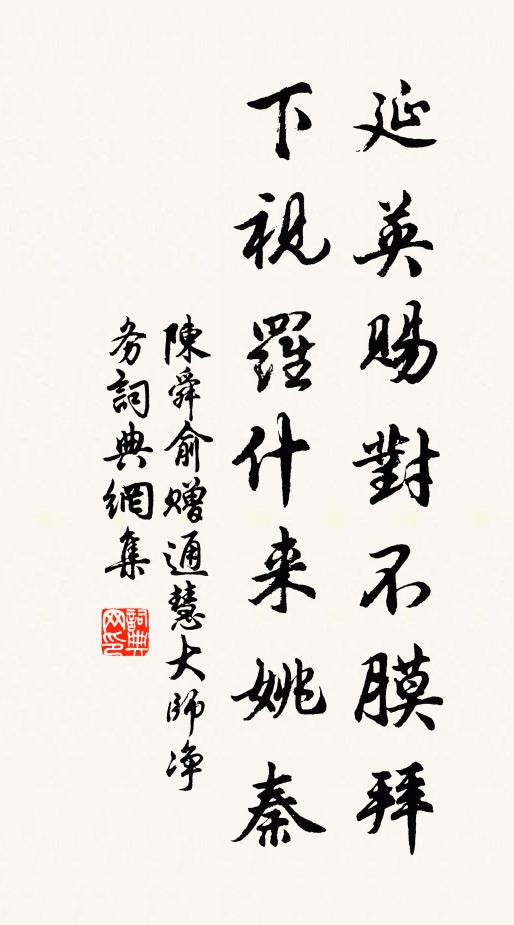 延英賜對不膜拜
下視羅什来姚秦
陳舜俞贈通慧大師净
务詞典網集
詞典
网印